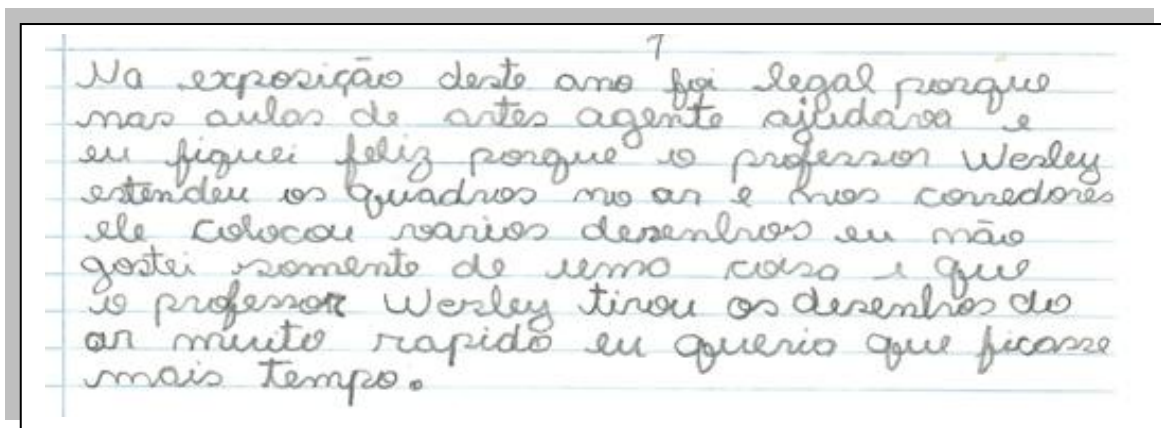 1
Na exposição deste ano foi legal porque
nas aulas de artes agente ajudava e
eu fiquei feliz porque o professor Wesley
estendeu os quadros no ar e nos corredores
ele colocou varios desenhos eu não
gostei somente de uma coisa e que
o professor Wesley tirou os desenhos do
ar muito rapido eu queria que ficasse
mais tempo.